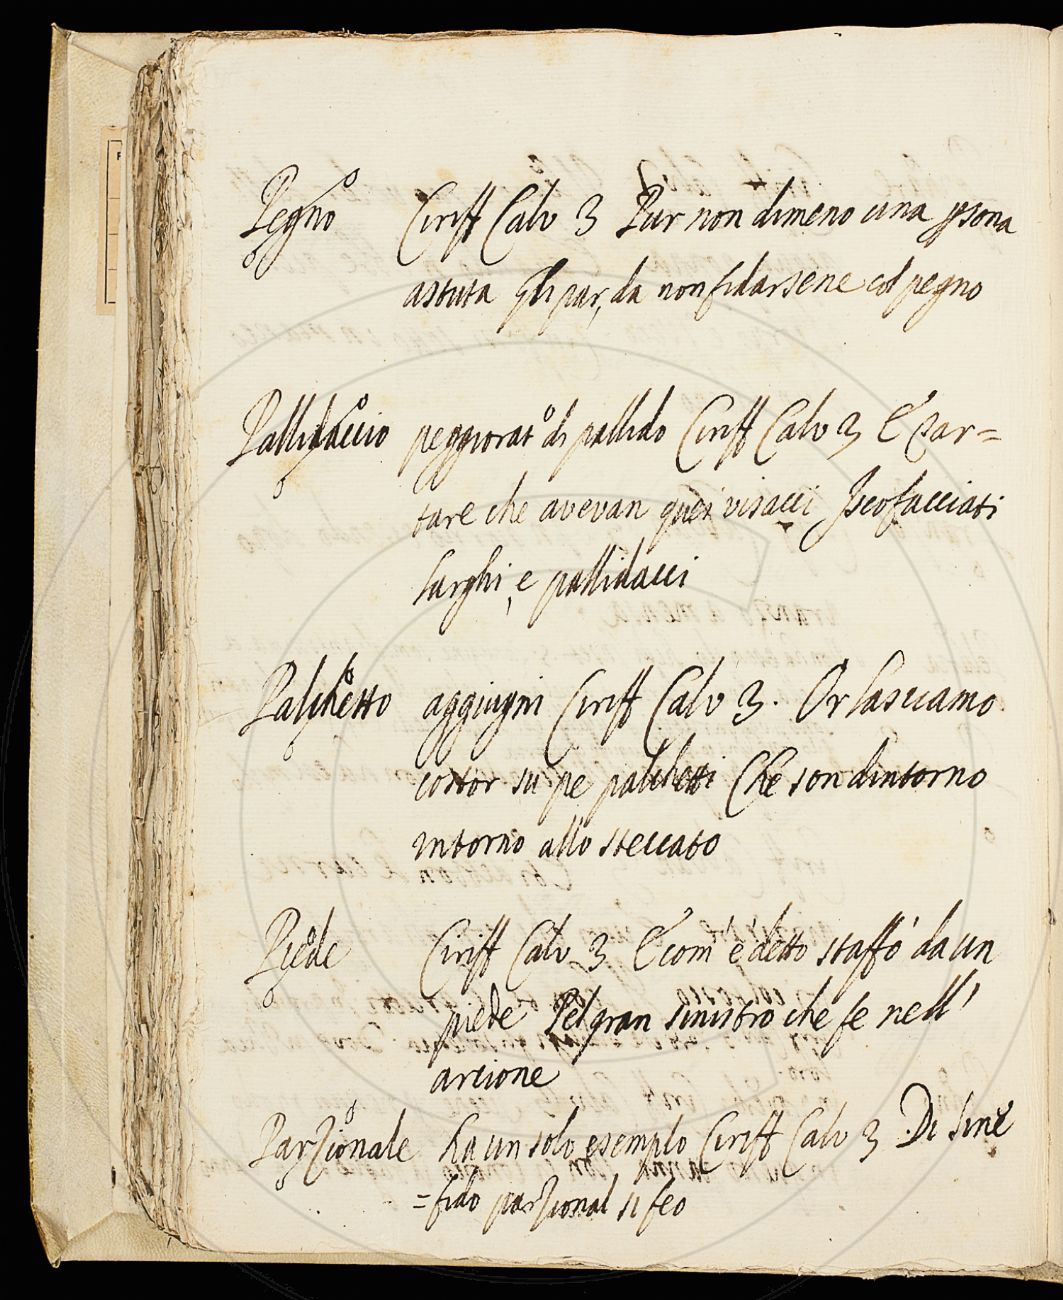 Pegno Ciriff Calv 3 Pur non dimeno una psona
astuta gli par, da non fidarsene col pegno
Pallidaccio peggiorat° di pallido Ciriff Calv 3 E
tare che avevan quei visacci
larghi, e pallidacci
Palchetto aggiugni Ciriff Calv 3. Or lasciamo
costor su pe palchetti Che son dintorno
intorno allo steccato
Piede Ciriff Calv 3 E com' è detto staffò da un
piede Pel gran sinistro che fe nell'
arcione
Parzionale ha un solo esemplo Ciriff Calv 3 Di Sine
=fido parzional si feo